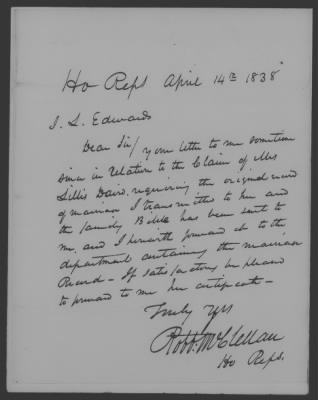 Ho Reps April 14th 1838
J. L. Edwards
Dear Sir/ your letter to me sometime
since in relation to the Claim of Mrs
Lillis requiring the original record
of marriage I transmitted to her and
the family Bible has been sent to
me and I herewith forward it to the
department containing the marriage
Record - If satisfactory be pleased
to forward to me her certificate -
Truly Yrs
Robt. McClellan
Ho Reps.